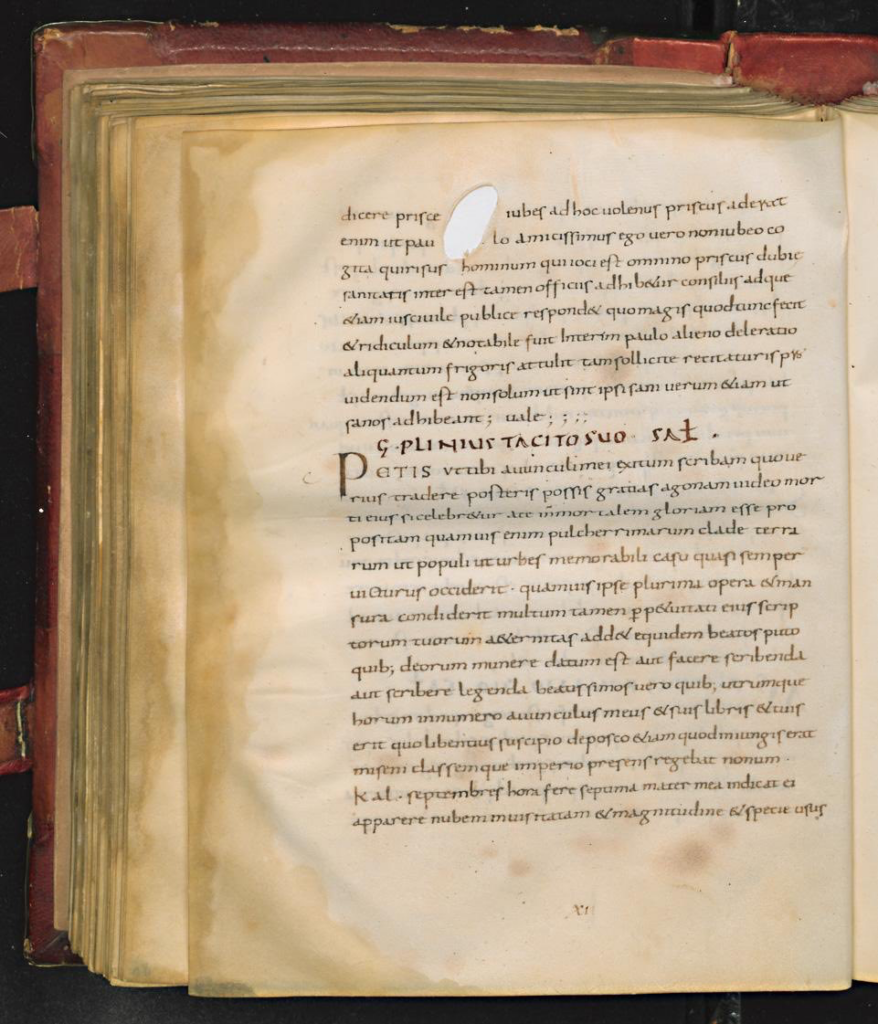 dicere prisce iubes ad hoc uolenus priscus aderat
enim ut pau lo amicissimus ego uero non iubeo co
gita quirisus hominum qui ioci est omnino priscus dubie
sanitatis inter est tamen officiis adhib&ur consiliis adque
&iam iusciuile publice respond& quo magis quod tunc fecit
& ridiculum & notabile fuit Interim paulo alieno deleratio
aliquantum frigoris attulit tam sollicite recitaturis
uidendum est non solum ut sint ipsi sani uerum &iam ut
sanos adhibeant; uale; ; ; ;
C· PLINIUS TACITO SUO SAŁ ·
PETIS ut tibi auunculi mei exitum scribam quo ue
rius tradere posteris possis gratias agonam uideo mor
ti eius si celebr&ur ate inmortalem gloriam esse pro
positam quamuis enim pulcherrimarum clade terra
rum ut populi ut urbes memorabili casu quasi semper
uicturus occiderit · quamuis ipse plurima opera & man
sura condiderit multum tamen ꝑp&uitati eius scrip
torum tuorum a&ernitas add& equidem beatos puto
quib; deorum munere datum est aut facere scribenda
aut scribere legenda beatissimos uero quib; utrumque
horum in numero auunculus meus & suis libris & tuis
erit quo libentius suscipio deposco &iam quod iniungis erat
miseni classemque imperio presens regebat nonum ·
kal · septembres hora fere septima mater mea indicat ei
apparere nubem inuisitatam & magnitudine & specie usus
XI